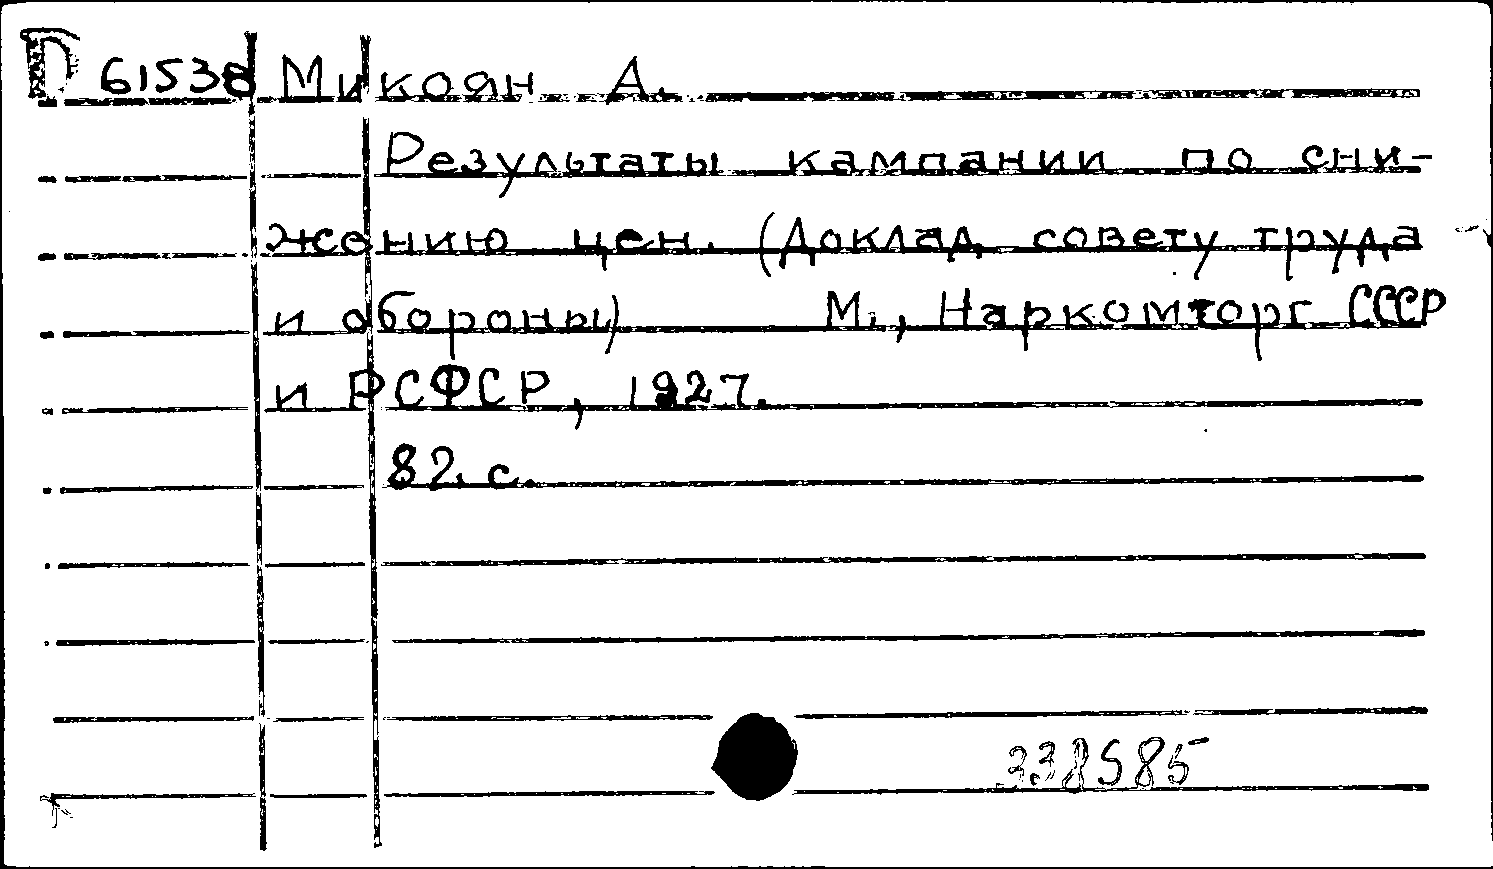 D 61538 Микоян А.
Результаты кампании по сни-
жению цен. (Доклад совету труда
и обороны) М., Наркомторг СССР
и РСФСР, 1927.
82. с.
338585